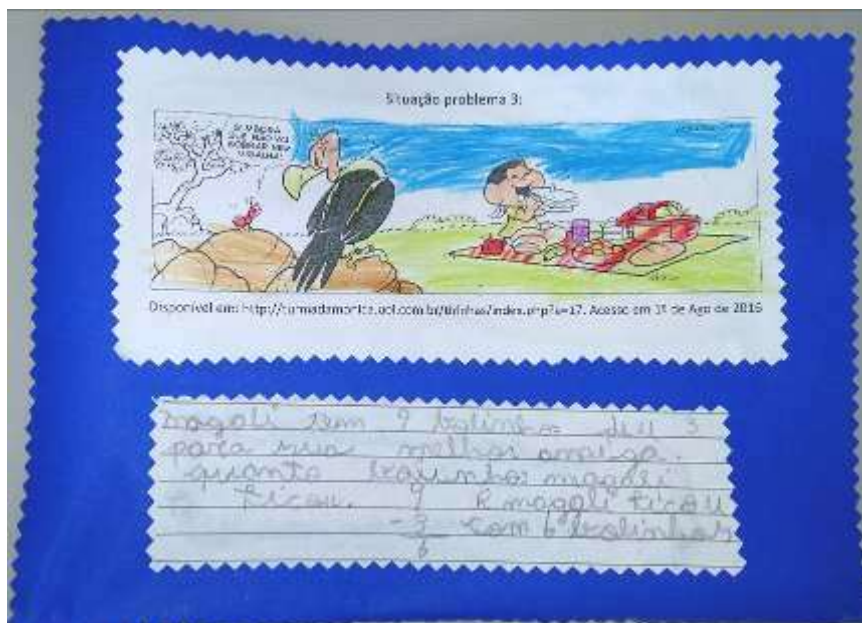 Situação problema 3:
SOBRAR NEM
MIGALHA!
Disponível em: http://turmadamonica.uol.com.br/tirinhas/index.php?a=17. Acesso em 1º de Ago de 2016
magali tem 9 bolinhos deu 3
para sua melhor amiga.
quanto magali
ficou. 9 R magali ficou
- 3 com 6 bolinhos
6